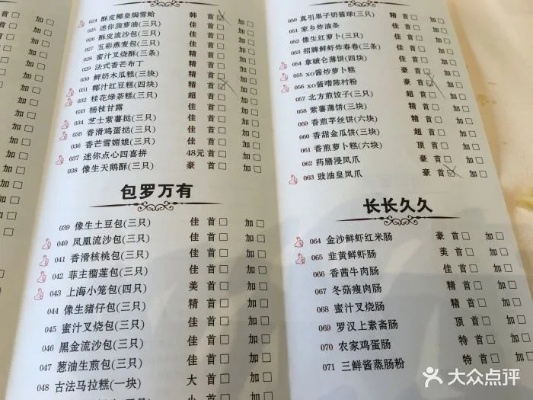 024 酥皮椰皇焗雪蛤 韩 首□ 加□
025 迷你菠萝油(三只) 精 首□ 加□
026 酥皮流沙包(三只) 佳 首□ 加□
027 五彩燕麦包(三只) 佳 首□ 加□
028 蜜汁叉烧酥(三条) 精 首□ 加□
029 法式香芒布丁 精 首□ 加□
030 鲜奶木瓜糕(三块) 精 首□ 加□
031 椰汁红豆糕(四块) 精 首□ 加□
032 桂花绿茶糕(三只) 超 首□ 加□
033 杨枝甘露 佳 首□ 加□
034 芝士紫薯挞(三只) 佳 首□ 加□
035 香滑鸡蛋挞(三只) 佳 首□ 加□
036 香芒雪媚娘(三只) 佳 首□ 加□
037 迷你点心四喜拼 48元 首□ 加□
038 像生天鹅酥(三只) 豪 首□ 加□
包罗万有
039 像生土豆包(三只) 佳 首□ 加□
040 凤凰流沙包(三只) 佳 首□ 加□
041 香滑核桃包(三只) 佳 首□ 加□
042 菲主榴莲包(三只) 佳 首□ 加□
043 上海小笼包(四只) 美 首□ 加□
044 像生猪仔包(三只) 精 首□ 加□
045 蜜汁叉烧包(三只) 佳 首□ 加□
046 黑金流沙包(三只) 佳 首□ 加□
047 葱油生煎包(三只) 佳 首□ 加□
048 古法马拉糕(一块) 大 首□ 加□
小 首□
050 真羽果子奶酱球(三只) 精 首□
051 家乡炸油条 首□
052 像生红萝卜(三只) 精 首□ 加□
053 招牌鲜虾炸春卷(三条) 首□ 加□
054 拿破仑薄饼(四块) 精 首□ 加□
055 xo酱炒萝卜糕 豪 首□ 加□
056 xo酱嗜陈村粉 豪 首□ 加□
057 北方煎饺子(三只) 超 首□ 加□
058 紫薯薄饼(三只) 精 首□ 加□
059 香煎芋丝饼(六块) 精 首□ 加□
060 香甜金瓜饼(三只) 超 首□ 加□
061 香煎萝卜糕(六块) 精 首□ 加□
062 药膳浸凤爪 豪 首□ 加□
063 豉油皇凤爪 豪 首□ 加□
长长久久
064 金沙鲜虾红米肠 豪 首□ 加□
065 韭黄鲜虾肠 美 首□ 加□
066 香茜牛肉肠 佳 首□ 加□
067 冬菇瘦肉肠 佳 首□ 加□
068 蜜汁叉烧肠 精 首□ 加□
069 罗汉上素斋肠 顶 首□ 加□
070 农家鸡蛋肠 特 首□ 加□
071 三鲜酱蒸肠粉 特 首□ 加□
大众点评